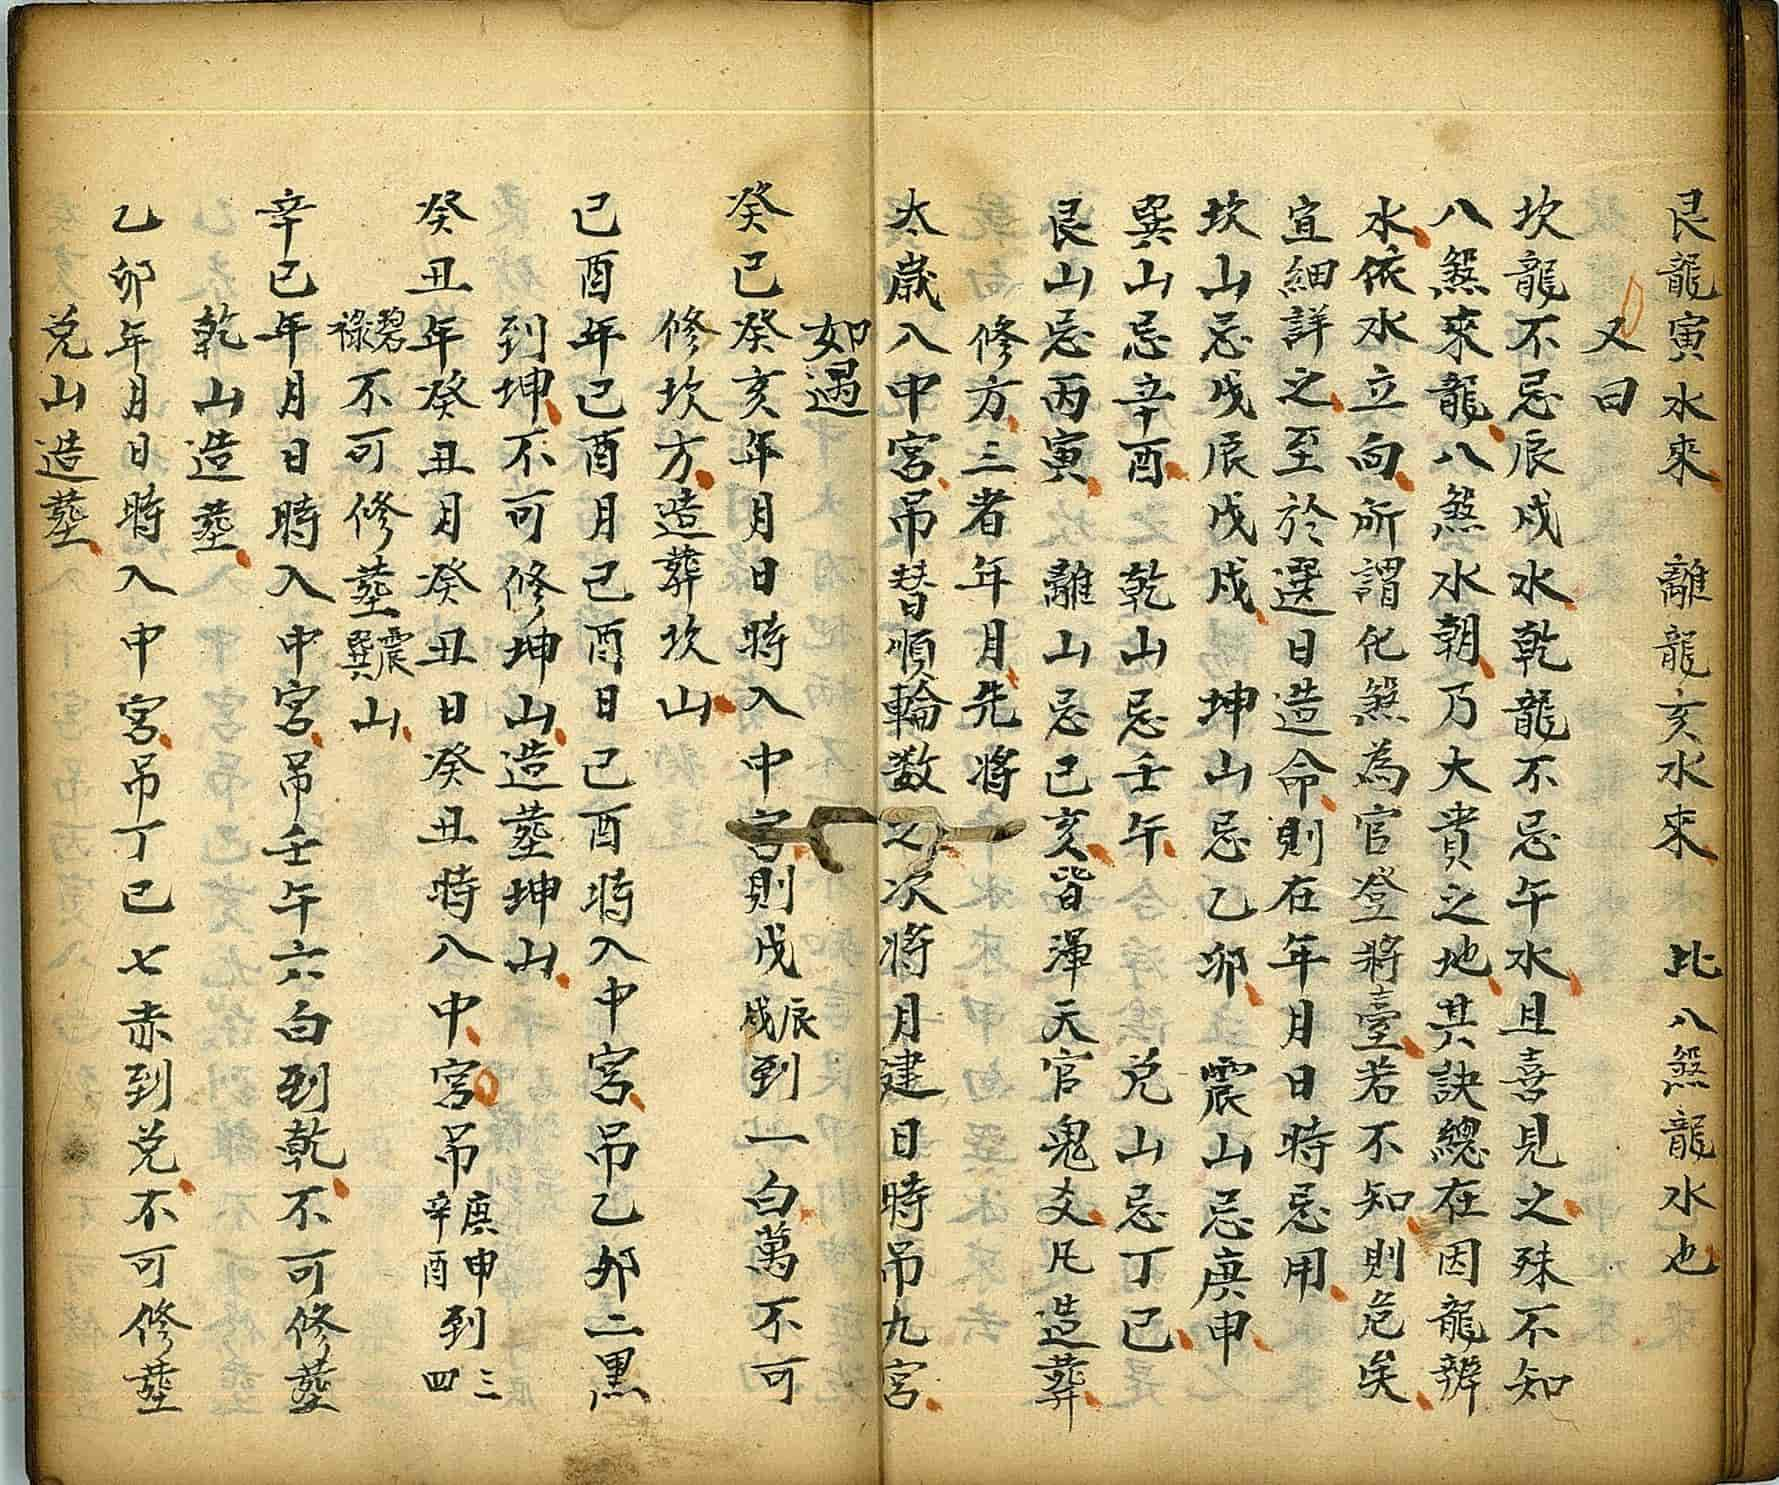 艮龍寅水來　離龍亥水來　此八煞龍水也
又曰
坎龍不忌辰戍水乾龍不忌午水且喜見之殊不知
八煞來龍八煞水朝乃大貴之地其訣總在因龍辨
水依水立向所謂化煞為官登將臺若不知則危矣
宜細詳之至於選日造命則在年月日時忌用
坎山忌戊辰戊戍　坤山忌乙卯　震山忌庚申
巽山忌辛酉　乾山忌壬午　兌山忌丁巳
艮山忌丙寅　離山忌己亥皆渾天官鬼爻凡造葬
修方三者年月先將
太歲入中宮吊替順輪数之次將月建日時吊九宮
如遇
癸巳癸亥年月日時入中宮則戊辰戍到一白萬不可
修坎方造葬坎山
己酉年己酉月己酉日己酉時入中宮吊乙卯二黑
到坤不可修坤山造塟坤山
癸丑年癸丑月癸丑日癸丑時入中宮吊庚申辛酉到三四
碧祿不可修塟震巽山
辛巳年月日時入中宮吊壬午六白到乾不可修塟
乾山造塟
乙卯年月日時入中宮吊丁巳七赤到兌不可修塟
兌山造塟